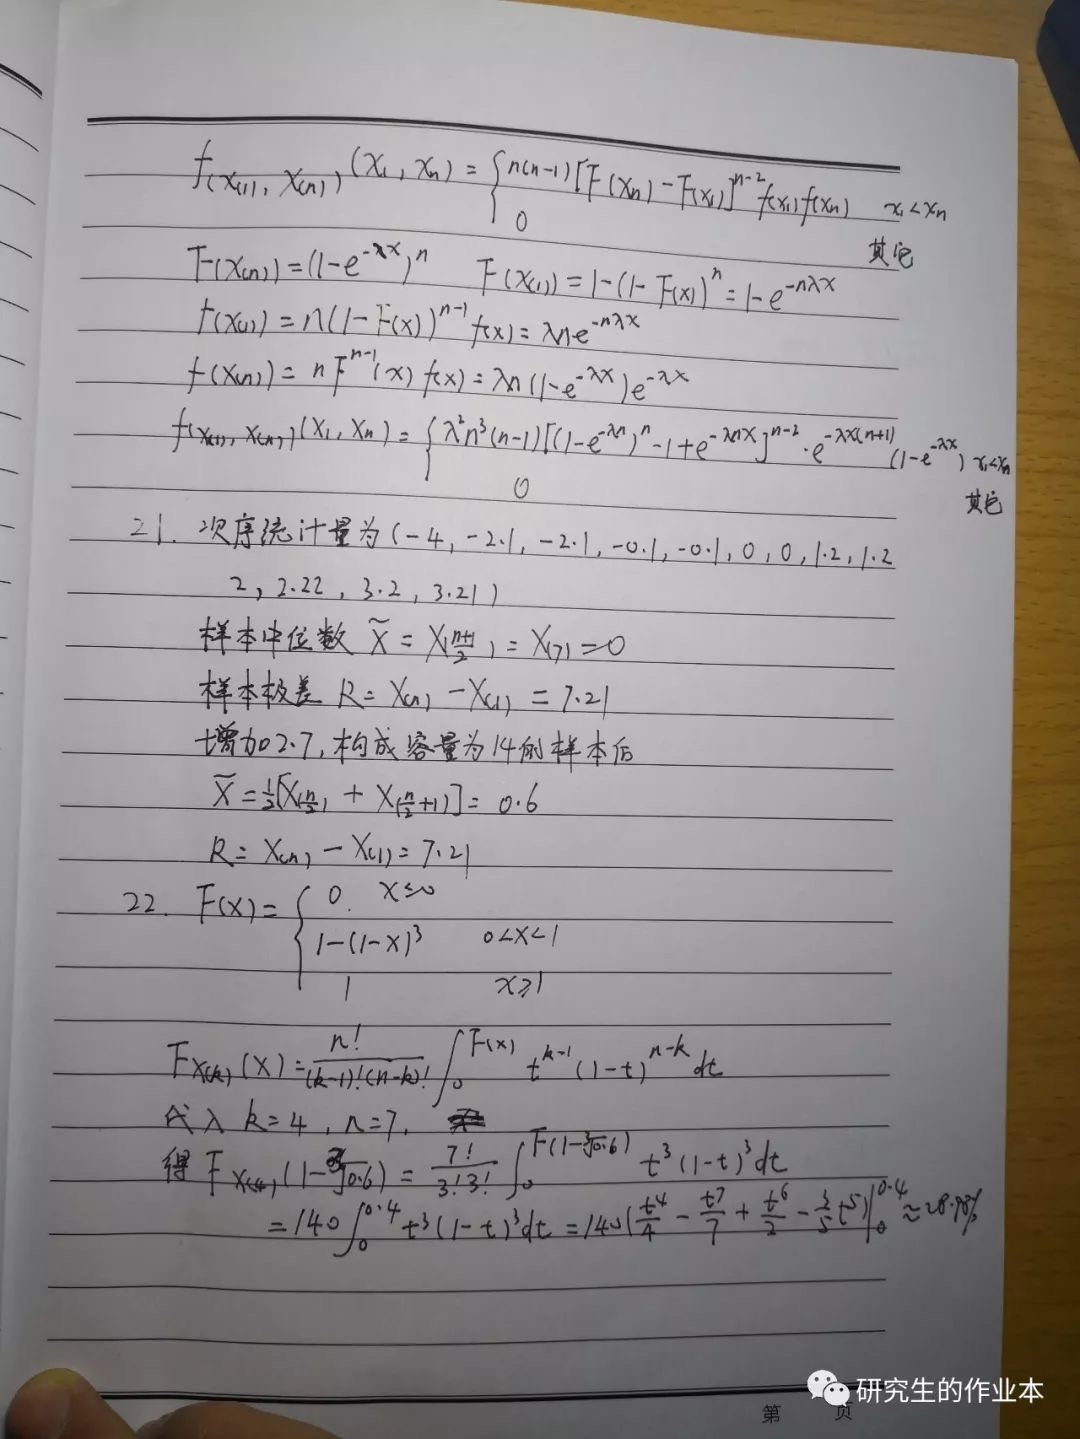 f(X(1), X(n))(x₁, xₙ) = { n(n-1)[F(xₙ) - F(x₁)]^{n-2} f(x₁) f(xₙ)  x₁<xₙ
0  其它
F(X(n)) = (1-e^{-λx})^n  F(X(1)) = 1-(1-F(x))^n = 1-e^{-nλx}
f(X(1)) = n(1-F(x))^{n-1} f(x) = λn·e^{-nλx}
f(X(n)) = n F^{n-1}(x) f(x) = λn(1-e^{-λx})e^{-λx}
f(X(1), X(n))(x₁, xₙ) = { λ²n³(n-1)[(1-e^{-λn})^n -1+e^{-λnx}]^{n-2}·e^{-λx(n+1)}(1-e^{-λx})  x₁<xₙ
0  其它
21. 次序统计量为(-4, -2.1, -2.1, -0.1, -0.1, 0, 0, 1.2, 1.2
2, 2.22, 3.2, 3.21)
样本中位数 X̃ = X(n+1/2) = X(7) = 0
样本极差 R = X(n) - X(1) = 7.21
增加2.7, 构成容量为14的样本后
X̃ = ½[X(n/2) + X(n/2+1)] = 0.6
R = X(n) - X(1) = 7.21
22. F(x) = { 0.  x≤0
1-(1-x)³  0<x<1
1  x≥1
F_{X(k)}(x) = n!/((k-1)!(n-k)!) ∫₀^{F(x)} t^{k-1}(1-t)^{n-k}dt
代入 k=4, n=7,
得 F_{X(4)}(1-∛0.6) = 7!/(3!3!) ∫₀^{F(1-∛0.6)} t³(1-t)³dt
= 140∫₀^{0.4} t³(1-t)³dt = 140(t⁴/4 - t⁷/7 + t⁶/2 - 3/5 t⁵)|₀^{0.4} ≈ 28.98%
第 页
研究生的作业本